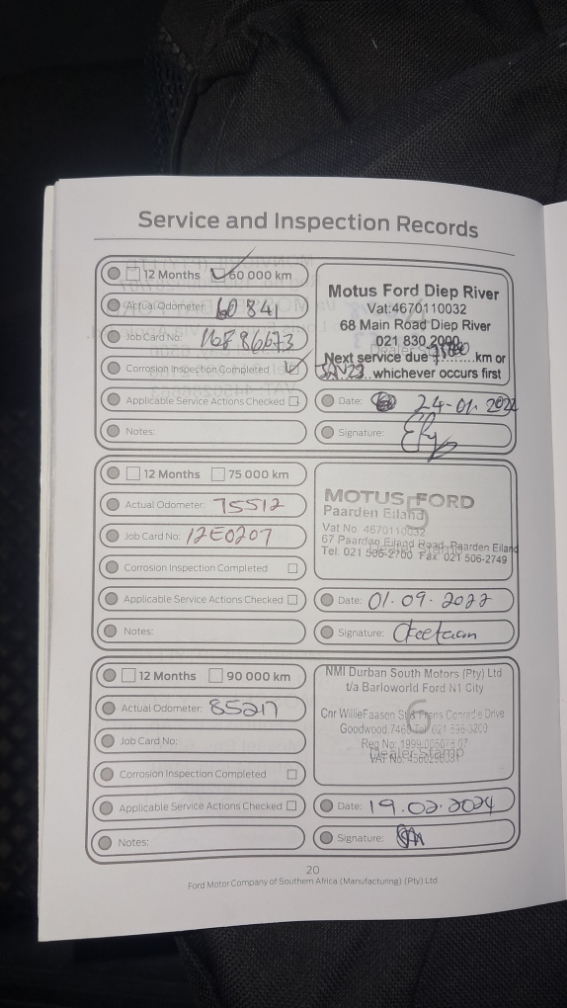 Service and Inspection Records
12 Months 60 000 km
Actual Odometer: 60 841
Job Card No:
Corrosion Inspection Completed
Applicable Service Actions Checked
Notes:
Motus Ford Diep River
Vat:4670110032
68 Main Road Diep River
021 830 2000
Next service due 75800 km or
JAN 23 whichever occurs first
Date: 24-01-2022
Signature:
12 Months 75 000 km
Actual Odometer: 75512
Job Card No: 12E0207
Corrosion Inspection Completed
Applicable Service Actions Checked
Notes:
MOTUS FORD
Paarden Eiland
Vat No. 4670110032
67 Paarden Eiland Road, Paarden Eiland
Tel. 021 506-2700 Fax 021 506-2749
5
Date: 01-09-2022
Signature:
12 Months 90 000 km
Actual Odometer: 85217
Job Card No:
Corrosion Inspection Completed
Applicable Service Actions Checked
Notes:
NMI Durban South Motors (Pty) Ltd
t/a Barloworld Ford N1 City
Cnr Willie Faasen St & Frans Conradie Drive
Goodwood,7460
6
Dealer Stamp
Date: 19.02.2024
Signature:
20
Ford Motor Company of Southern Africa (Manufacturing) (Pty) Ltd